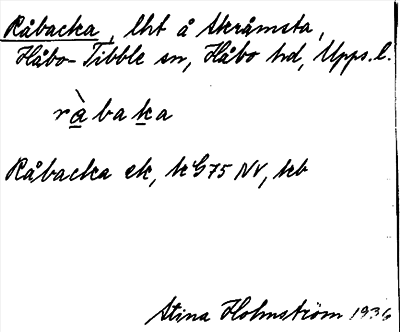 Råbacka, lht å Skråmsta,
Håbo-Tibble sn, Håbo hd, Upps. l.
ràbaka
Råbacka ek, k G75 NV, kb
Stina Holmström 1936